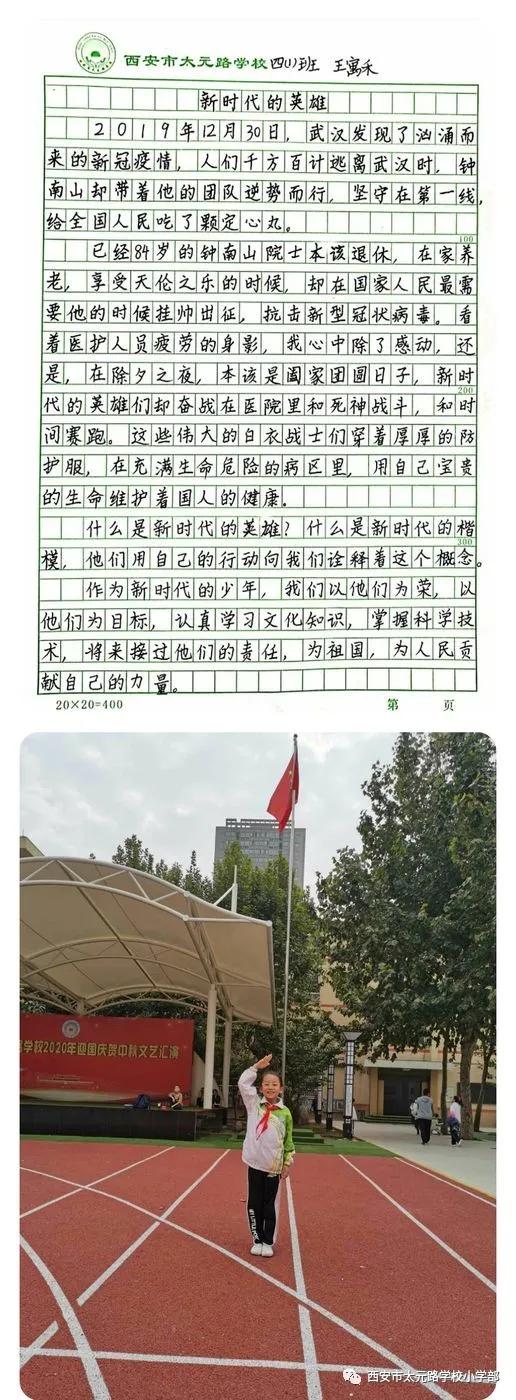 西安市太元路学校 四(1)班 王寓禾
新时代的英雄
2019年12月30日，武汉发现了汹涌而
来的新冠疫情，人们千方百计逃离武汉时，钟
南山却带着他的团队逆势而行，坚守在第一线，
给全国人民吃了颗定心丸。
100
已经84岁的钟南山院士本该退休，在家养
老，享受天伦之乐的时候，却在国家人民最需
要他的时候挂帅出征，抗击新型冠状病毒。看
着医护人员疲劳的身影，我心中除了感动，还
是，在除夕之夜，本该是阖家团圆日子，新时
200
代的英雄们却奋战在医院里和死神战斗，和时
间赛跑。这些伟大的白衣战士们穿着厚厚的防
护服，在充满生命危险的病区里，用自己宝贵
的生命维护着国人的健康。
什么是新时代的英雄？什么是新时代的楷
300
模，他们用自己的行动向我们诠释着这个概念。
作为新时代的少年，我们以他们为荣，以
他们为目标，认真学习文化知识，掌握科学技
术，将来接过他们的责任，为祖国，为人民贡
献自己的力量。
20×20=400 第 页
学校2020年迎国庆贺中秋文艺汇演
西安市太元路学校小学部